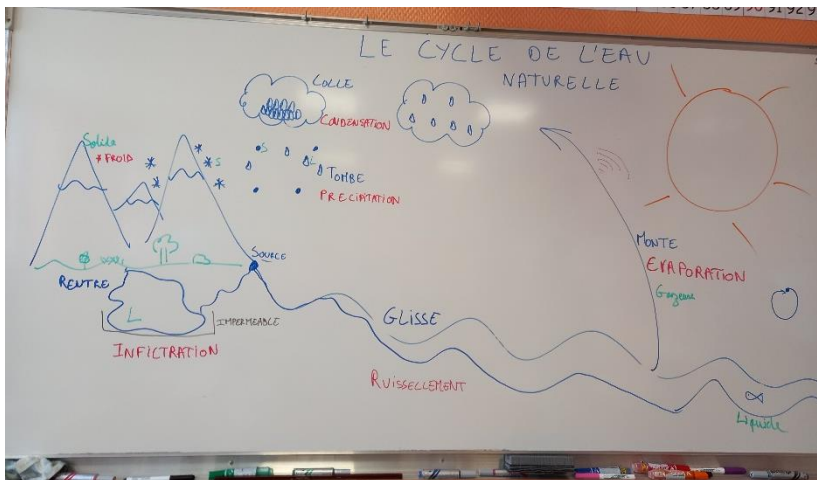 LE CYCLE DE L'EAU
NATURELLE
COLLE
CONDENSATION
Solide
* FROID
S
S
L
TOMBE
PRECIPITATION
SOURCE
MONTE
EVAPORATION
Gazeux
RENTRE
L
IMPERMEABLE
INFILTRATION
GLISSE
RUISSELLEMENT
Liquide